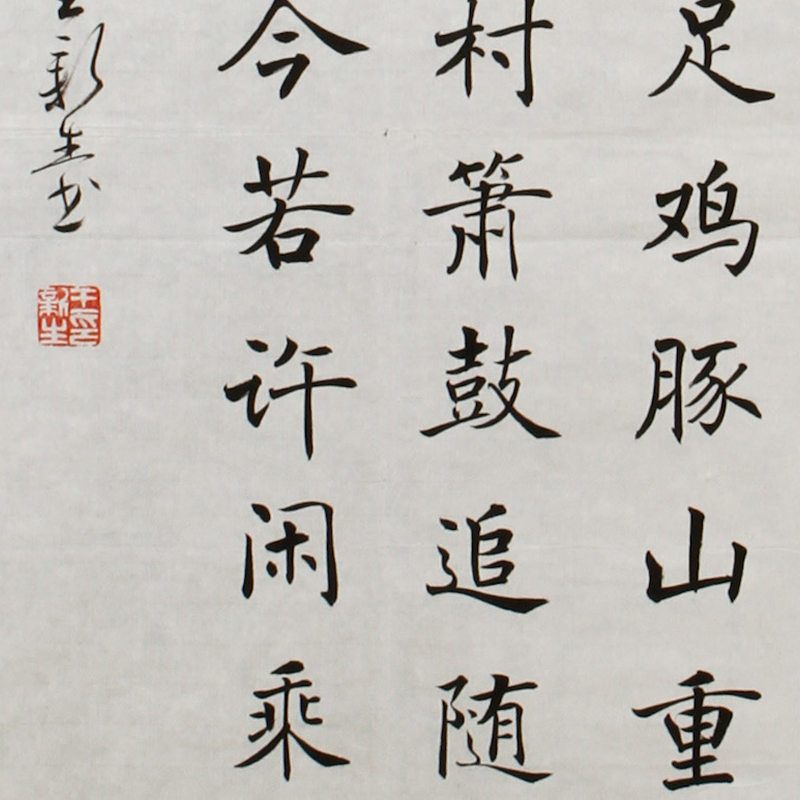 足鸡豚山重
村箫鼓追随
今若许闲乘
新生书